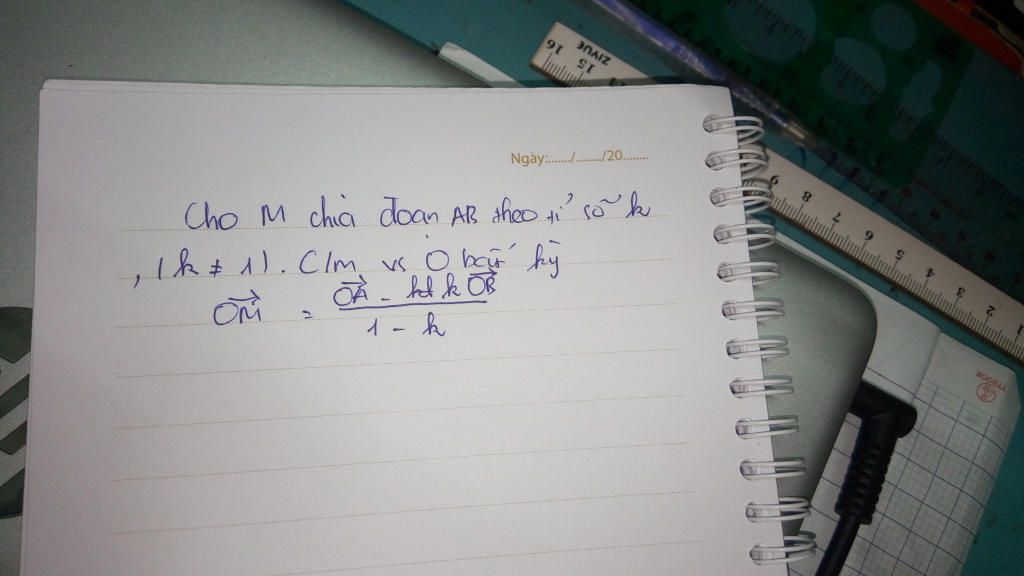 Ngày:....../......../20........
Cho M chia đoạn AB theo tỉ số k
, (k ≠ 1). C/m vs O bất kỳ
OM = OA - k OB
1 - k
ZIYUE
16 15
9 8 7 6 5 4 3 2 1